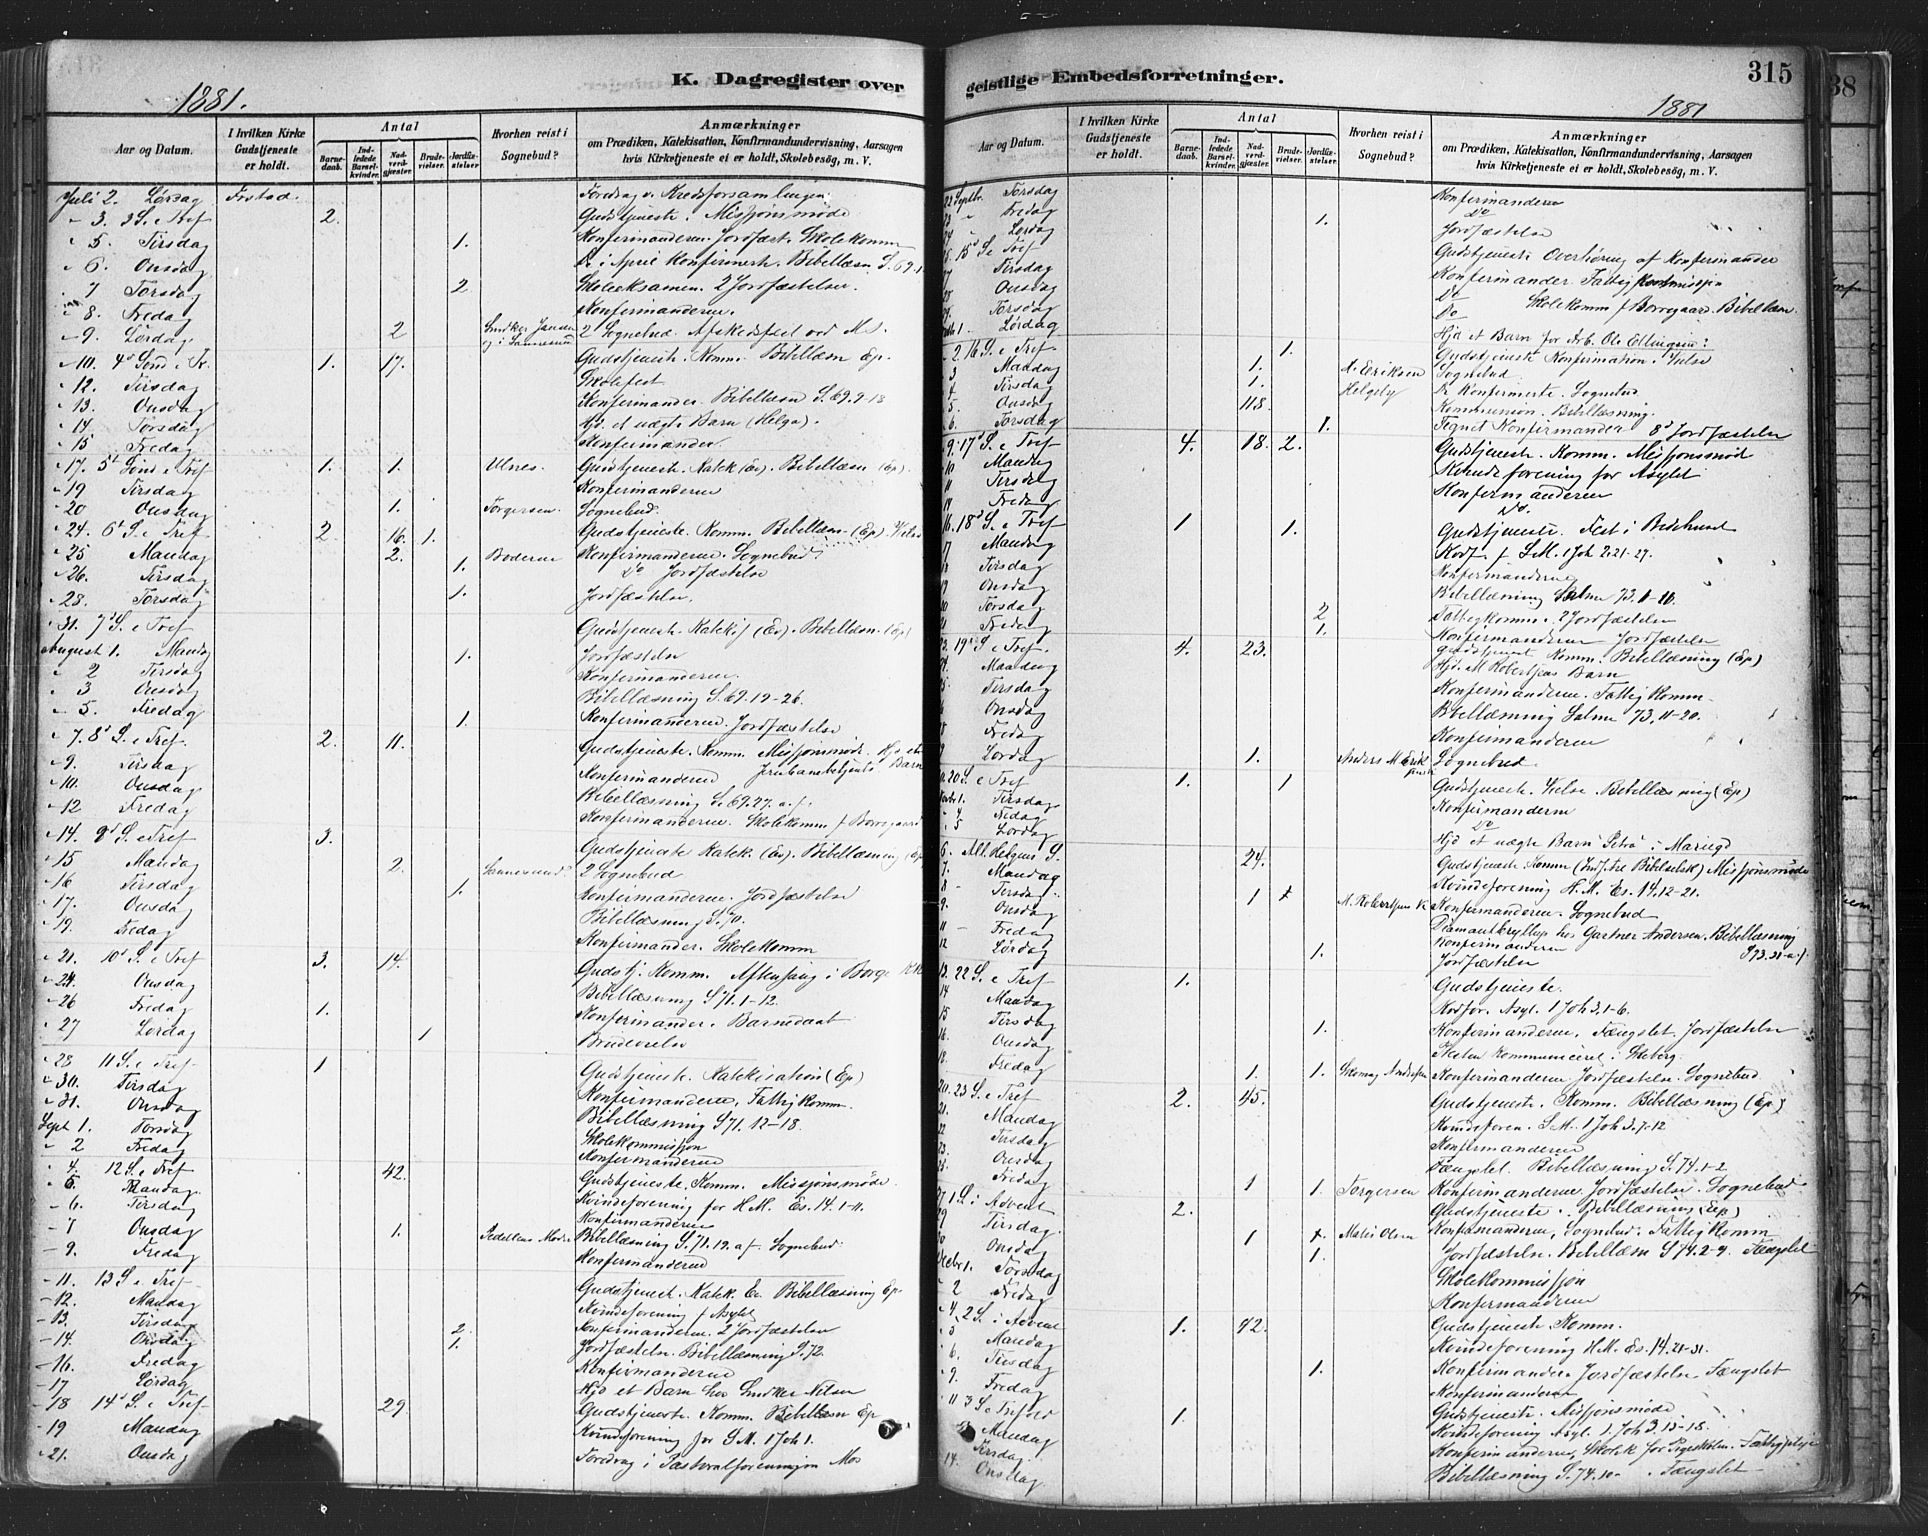 K. Dagregister over
1881.
Aar og Datum.
I hvilken Kirke Gudstjeneste er holdt.
Antal
Barnedaab.
Indledede Barselkvinder.
Nadverdgjæster.
Brudevielser.
Jordfæstelser.
Hvorhen reist i Sognebud?
Anmærkninger
om Prædiken, Katekisation, Konfirmandundervisning, Aarsagen
hvis Kirketjeneste ei er holdt, Skolebesøg, m. V.
Juli 2. Lørdag
3. 3 S. e Tref 2. Gudstjeneste. Missjonsmøde
5. Tirsdag 1. Konfirmanderne. Jordfæst. Skolekomm
6. Onsdag De i April Konfirmerte. Bibellæsn S. 69.1
7 Torsdag 2 Skoleeksamen. 2 Jordfæstelser.
8. Fredag Konfirmanderne.
9. Lørdag 2 2 Sognebud.
10. 4d Sønd e Tr. 1. 17. Gudstjeneste. Komm. Bibellæsn Ep.
12. Tirsdag Skolefest
13. Onsdag Konfirmander. Bibellæsn S. 69.9-18
14. Torsdag Hjd. et uægte Barn (Helga).
15 Fredag Konfirmander.
17. 5d Sønd e Tref 1. 1. Ulnes. Gudstjeneste. Katek (Ev). Bibellæsn (Ep).
19 Tirsdag Konfirmanderne
20 Onsdag 1. Torgersen. Sognebud.
24. 6d S. e Tref 2. 16. 1. Gudstjeneste. Komm. Bibellæsn (Ep). Vielse
25 Mandag 2. Konfirmanderne. Sognebud
26. Tirsdag 1. Do Jordfæstelse
28. Torsdag 1. Jordfæstelse.
31. 7d S. e Tref Gudstjeneste. Katekis (Ev). Bibellæsn. (Ep)
August 1. Mandag 1. Jordfæstelse
2 Tirsdag Konfirmanderne.
3 Onsdag Bibellæsning S. 69. 19-26.
5. Fredag 1. Konfirmanderne. Jordfæstelse
7. 8d S. e Tref 2. 11. Gudstjeneste. Komm. Missjonsmøde. Hjd et
9. Tirsdag Konfirmanderne Jernbanebetjents Barn
10. Onsdag Bibellæsning S. 69. 27. a. f.
12 Fredag Konfirmanderne. Skolekomm f Borregaard
14. 9d S. e Tref 3. Gudstjeneste Katek. (Ev). Bibellæsning (Ep
15 Mandag 2. Sannesund 2 Sognebud
16 Tirsdag 1. Konfirmanderne. Jordfæstelse
17. Onsdag Bibellæsning S. 70.
19. Fredag Konfirmander. Skolekomm
21. 10d S. e Tref 3. 14. Gudstj. Komm. Aftensang i Borge
24. Onsdag Bibellæsning S 71. 1-12.
26 Fredag 1. Konfirmander. Barnedaab
27 Lørdag 1 Brudevielse
28 11 S. e Tref 1 Gudstjeneste. Katekisation (Ep)
30. Tirsdag Konfirmanderne, Fattigkomm.
31. Onsdag Bibellæsning S 71. 12-18.
Sept 1. Torsdag Skolekommissjon
2 Fredag Konfirmanderne
4. 12 S. e Tref 42. Gudstjeneste. Komm. Missjonsmøde.
5. Mandag Kvindeforening for H.M. Es. 14. 1-11.
6. Tirsdag Konfirmanderne
7 Onsdag 1. Bibellæsning S. 71. 19. a. f. Sognebud
9. Fredag Konfirmanderne
11. 13 S. e Tref Gudstjeneste. Katek. Ev Bibellæsning Ep
12. Mandag Kvindeforening f Asylet
13. Tirsdag 2. Konfirmanderne. 2 Jordfæstelser
14 Onsdag 1. Jordfæstelse. Bibellæsning S. 72.
16. Fredag Konfirmanderne
17 Lørdag Hjd et Barn hos Snedker Nilsen
18 14d S. e Tref 29. Gudstjeneste. Komm. Bibellæsn Ep
19 Mandag Kvindeforening for S.M. 1 Joh 1.
21. Onsdag Foredrag i Pastoralforeningen Mos
geistlige Embedsforretninger.
315
1881
Aar og Datum.
I hvilken Kirke Gudstjeneste er holdt.
Antal
Barnedaab.
Indledede Barselkvinder.
Nadverdgjæster.
Brudevielser.
Jordfæstelser.
Hvorhen reist i Sognebud?
Anmærkninger
om Prædiken, Katekisation, Konfirmandundervisning, Aarsagen
hvis Kirketjeneste ei er holdt, Skolebesøg, m. V.
22 Septbr. Torsdag Konfirmanderne
23 Fredag 1. Do
24 Lørdag Jordfæstelse
15d S. e Tref Gudstjeneste Overhøring af Konfirmander
Tirsdag Konfirmander. Fattigkommissjon
28 Onsdag Do Skolekomm f Borregaard. Bibellæsn
29. Torsdag Do
1. Lørdag Hjd et Barn for Arb. Ole
2 16 S. e Tref 1. Gudstjeneste Konfirmation. Vielse
3 Mandag 1. Eriksen Sognebud
4. Tirsdag 1. Helgeby De Konfirmerte. Sognebud
5. Onsdag 118. Kommunion. Bibellæsning.
6. Torsdag 1. Tegnet Konfirmander Jordfæstelse
9. 17d S. e Tref 4. 18. 2. Gudstjeneste. Komm. Missjonsmød
10 Mandag Kvindeforening for Asylet
11 Tirsdag Konfirmanderne
14 Fredag Do.
16. 18d S. e Tref 1 1. Gudstjeneste. Fest i Bedehuset
17 Mandag Kvdf. f S.M. 1 Joh 2. 21-27.
18 Tirsdag Konfirmanderne
19 Onsdag Bibellæsning Salme 73. 1-10.
20 Torsdag 2 Fattigkomm. 2 Jordfæstelser
21 Fredag 1. Konfirmanderne Jordfæstelse
23. 19d S. e Tref. 4. 23. Gudstjenest Komm. Bibellæsning (Ep)
24. Mandag Hjd. M Robertsens Barn
25. Tirsdag Konfirmanderne. Fattigkomm.
Onsdag Bibellæsning Salme 73. 11-20.
Fredag Konfirmanderne
Lørdag 1. Anders M Erik Sognebud
20 S. e Tref 1. 1 Gudstjeneste. Vielse. Bibellæsning (Ep)
1. Tirsdag Konfirmanderne
4 Fredag Do
5 Lørdag Hjd et uægte Barn Petra i
6. All. Helgens S. 24. Gudstjeneste Komm Missjonsmøde
7. Mandag Kvindeforening H.M. Es. 14. 12-21.
8 Tirsdag. 1 M. Robertsens Konfirmanderne. Sognebud
9. Onsdag Diamantbryllup hos Gartner Andersen. Bibellæsning
11 Fredag Konfirmanderne S 73. 21-a.f.
12 Lørdag 1. Jordfæstelse
13. 22 S. e Tref 1. Gudstjeneste.
14 Mandag Kvdfor. Asyl. 1 Joh 3. 1-6.
15 Tirsdag 1. Konfirmanderne. Fængslet Jordfæstelse
16. Onsdag
18. Fredag 1. 1. Konfirmanderne Jordfæstelse. Sognebud
20. 23 S. e Tref 2. 45. Gudstjeneste. Komm. Bibellæsning (Ep)
21. Mandag Kvindeforen. S.M. 1 Joh 3. 7-12
22 Tirsdag Konfirmanderne
23. Onsdag Fængslet. Bibellæsning S. 74. 1-2
Fredag 1 1. Torgersen Konfirmanderne. Jordfæstelse. Sognebud
27 1 S. i Advent 2. Gudstjeneste. Bibellæsning (Ep)
29 Tirsdag. 1 Konfirmanderne, Sognebud. Fattigkomm
30 Onsdag 1. Jordfæstelse. Bibellæsn S 74. 2-9. Fængslet
Decbr 1. Torsdag Skolekommissjon
2 Fredag Konfirmanderne
4. 2 S. i Advent 1. 42. Gudstjeneste. Komm.
5 Mandag Kvindeforening H.M. Es. 14. 21-31.
6. Tirsdag 1. Konfirmander Jordfæstelse. Fængslet
9. Fredag Konfirmanderne
11 3 S. 1. Gudstjeneste. Missjonsmøde
Mandag Kvindeforening Asyl. 1. Joh 3. 13-18.
Tirsdag. Konfirmanderne,
14. Onsdag Bibellæsning S. 74. 10- Fængslet